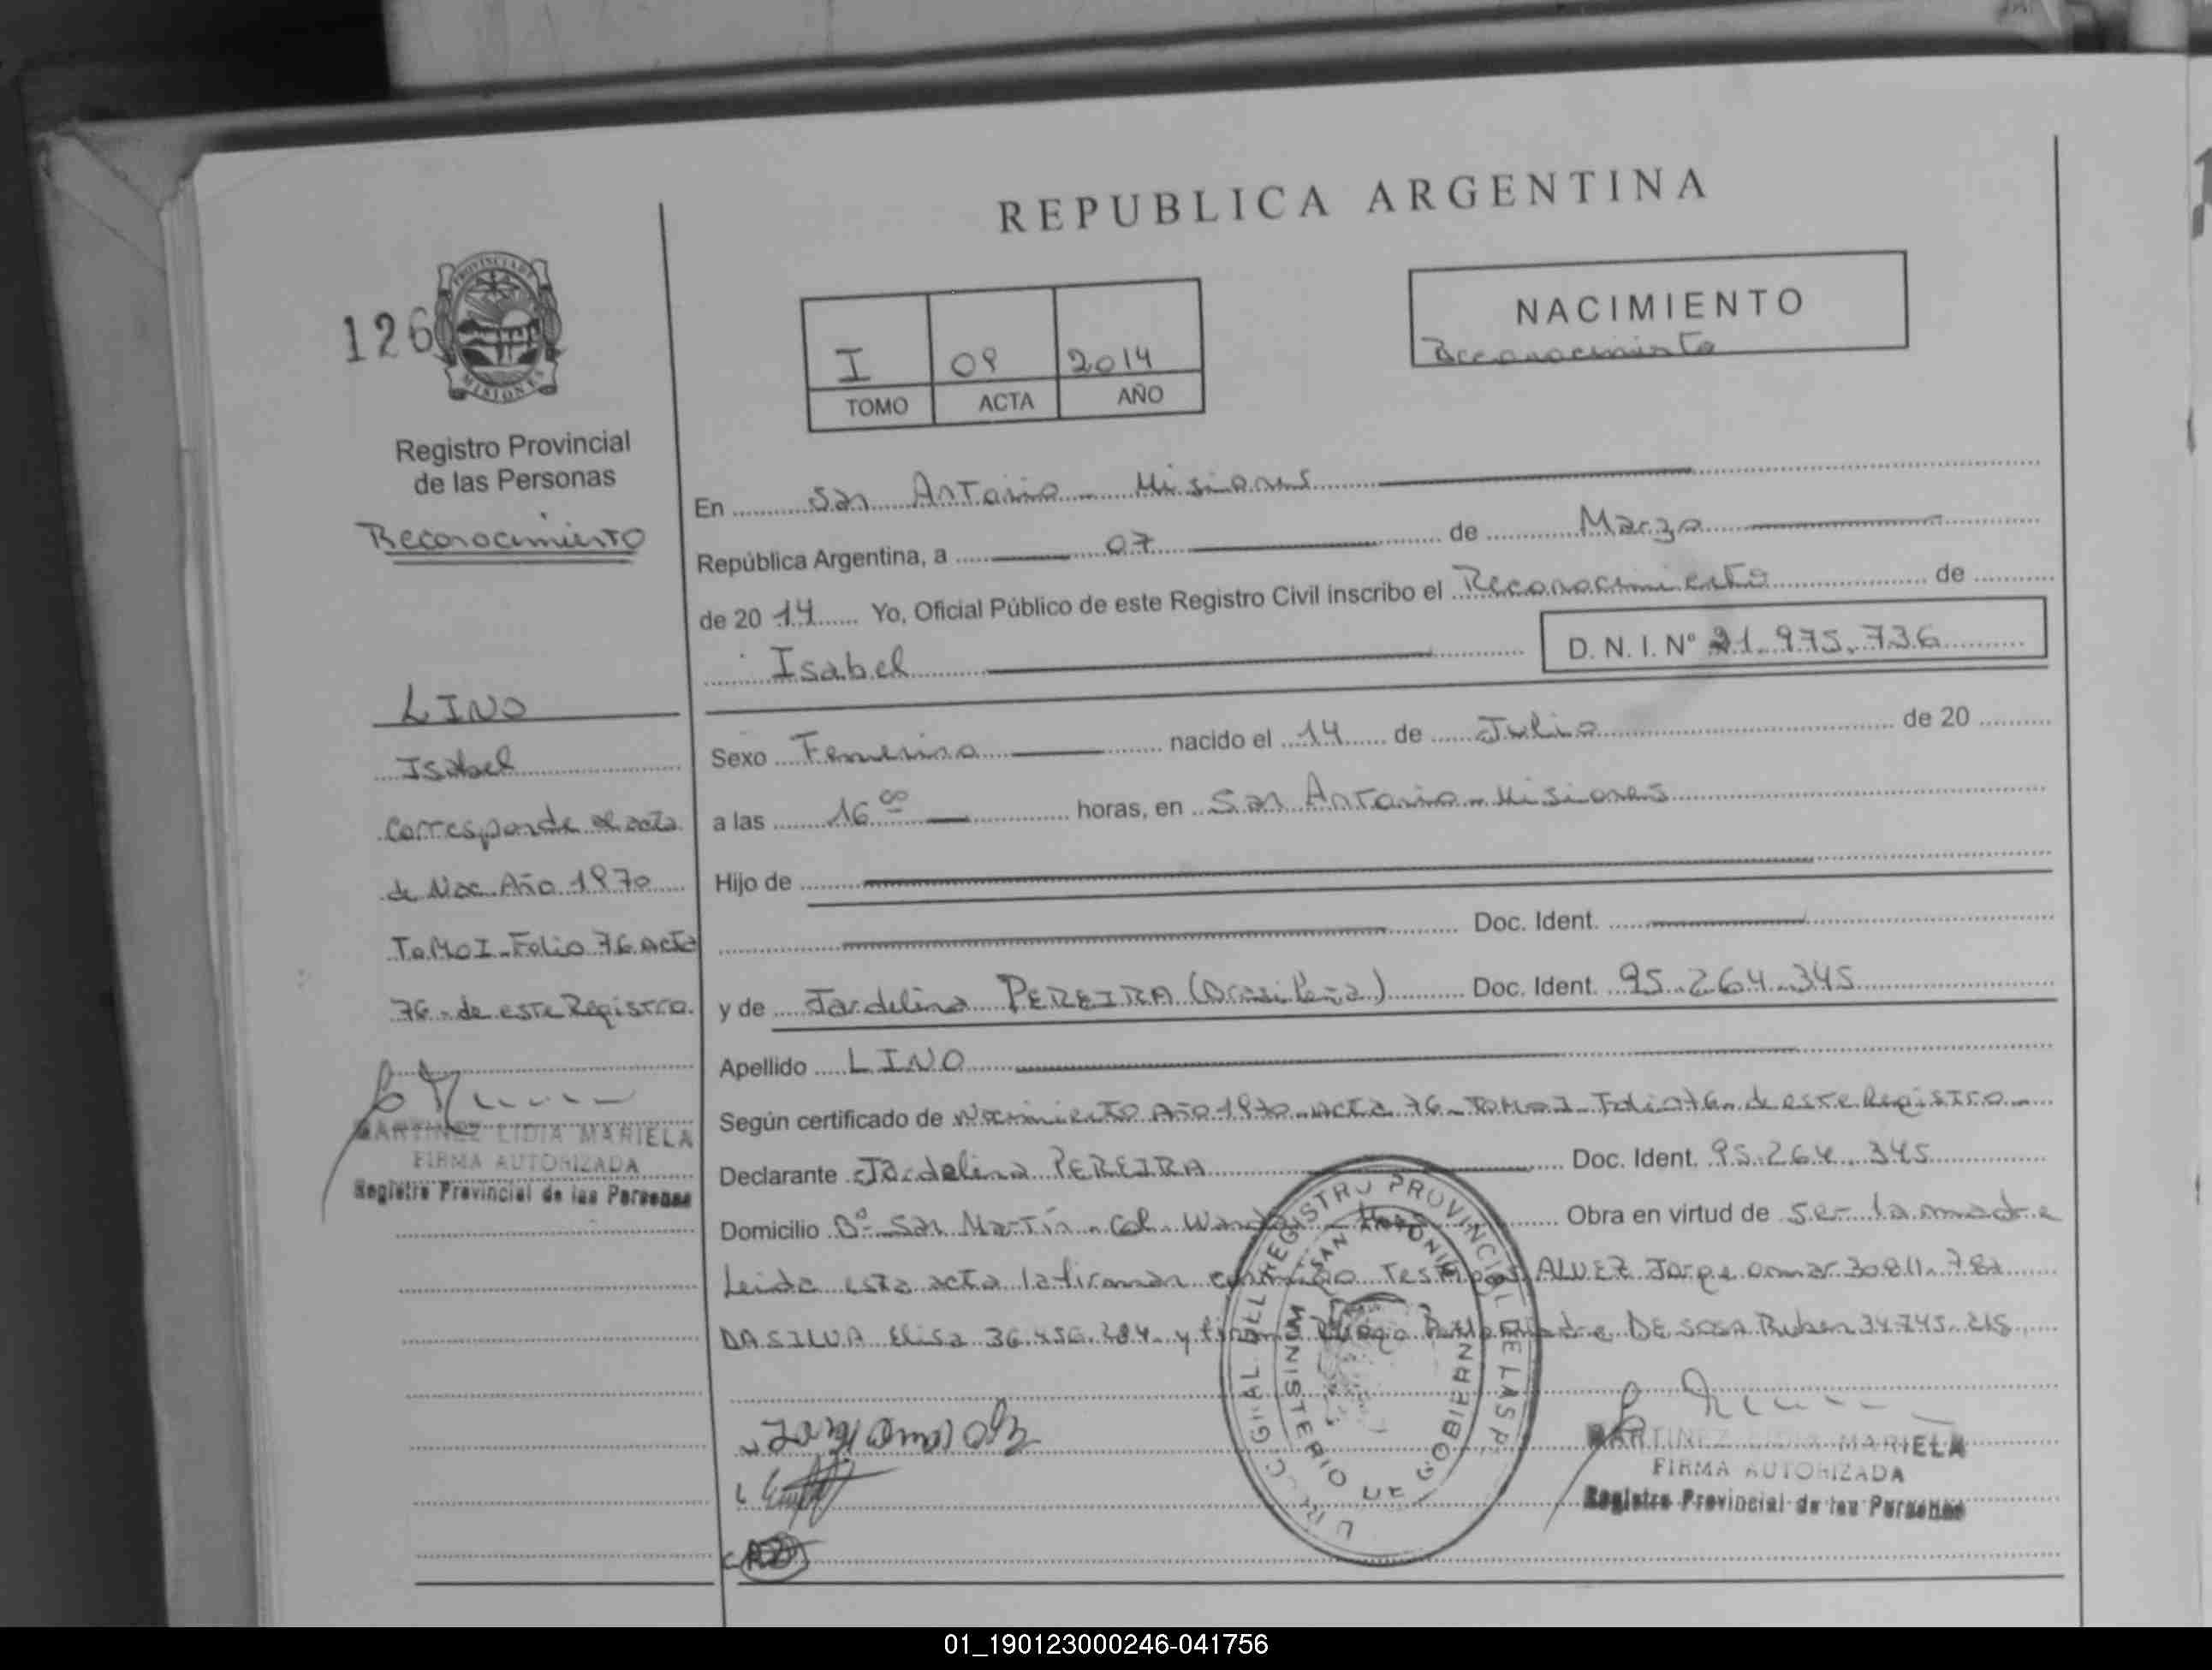 REPUBLICA ARGENTINA
126
PROVINCIA DE
MISIONES
Registro Provincial
de las Personas
Reconocimiento
I 09 2014
TOMO ACTA AÑO
NACIMIENTO
Reconocimiento
En San Antonio Misiones
República Argentina, a 07 de Marzo
de 20 14 Yo, Oficial Público de este Registro Civil inscribo el Reconocimiento de
Isabel D. N. I. Nº 21.975.736
LINO
Isabel
Corresponde al acta
de Nac. Año 1970
ToMo I - Folio 76 Acta
76 - de este Registro.
MARTINEZ LIDIA MARIELA
FIRMA AUTORIZADA
Registro Provincial de las Personas
Sexo Femenino nacido el 14 de Julio de 20
a las 16 00 horas, en San Antonio - Misiones
Hijo de
Doc. Ident.
y de Jardelina PEREIRA (Brasileña) Doc. Ident. 95.264.345
Apellido LINO
Según certificado de Nacimiento Año 1970 - Acta 76 - ToMo I Folio 76 - de este Registro
Declarante Jardelina PEREIRA Doc. Ident. 95.264.345
Domicilio Bº San Martín - Col. Wanda Obra en virtud de ser la madre
Leida esta acta la firman conmigo Testigos ALVEZ Jorge Omar 30.811.787
DASILVA Elisa 36.456.284 y firma Ruego Por la Madre DE SOSA Ruben 34.745.215
REGISTRO PROVINCIAL DE LAS P
MINISTERIO DE GOBIERNO
SAN ANTONIO
MARTINEZ LIDIA MARIELA
FIRMA AUTORIZADA
Registro Provincial de las Personas
01_190123000246-041756